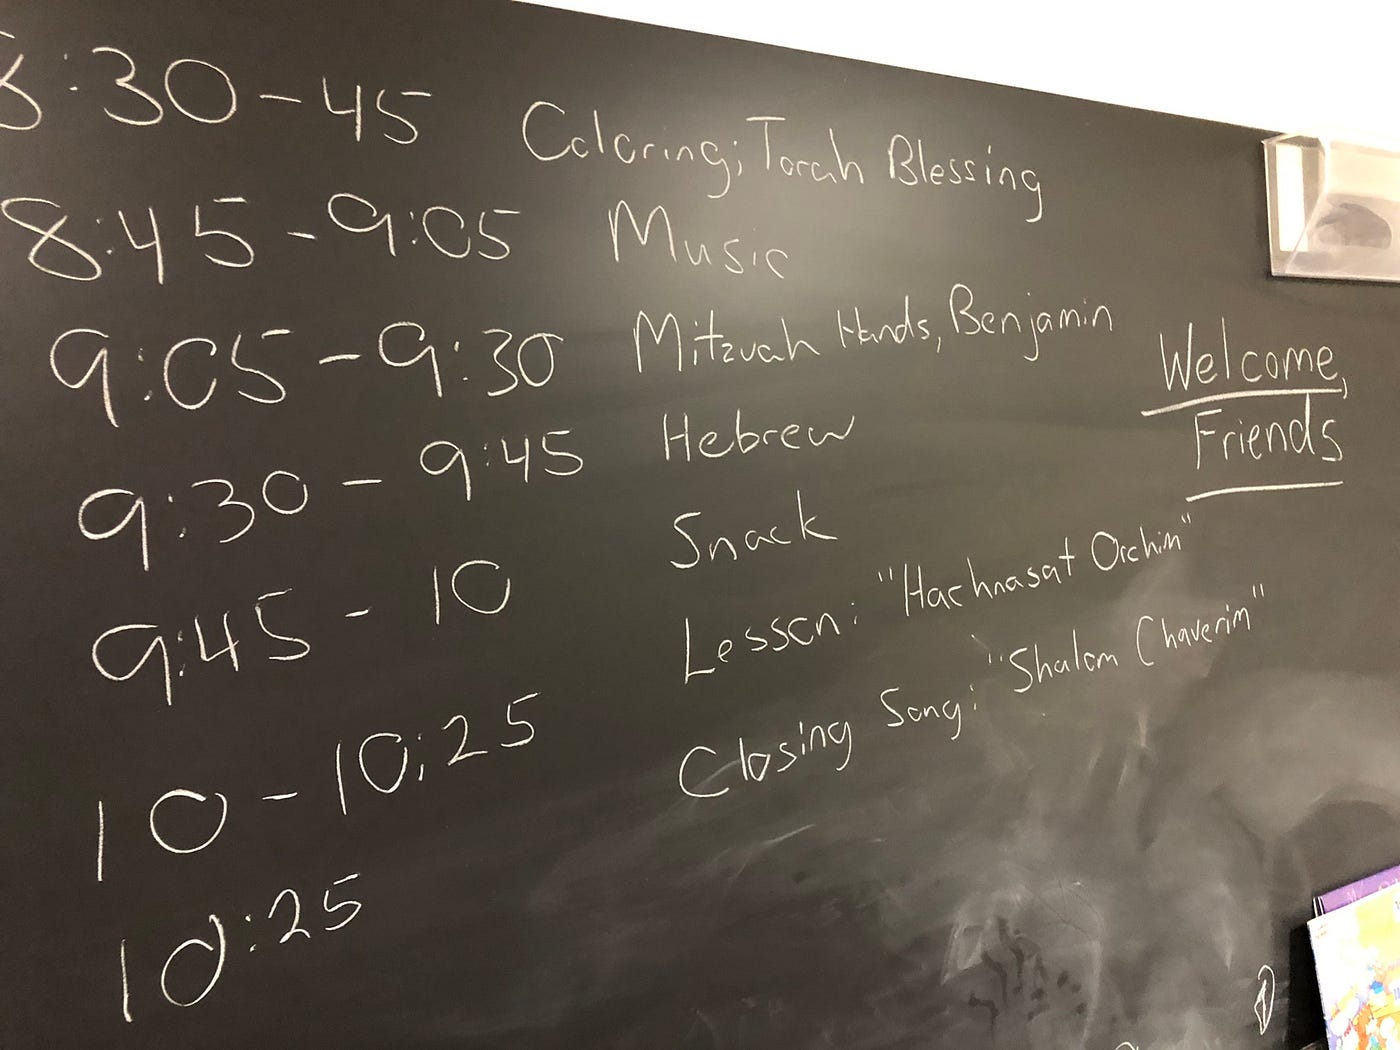 8:30-45 Coloring; Torah Blessing
8:45-9:05 Music
9:05-9:30 Mitzvah Hands, Benjamin
9:30-9:45 Hebrew
9:45-10 Snack
10-10:25 Lesson: "Hachnasat Orchim"
10:25 Closing Song: "Shalom Chaverim"
Welcome,
Friends